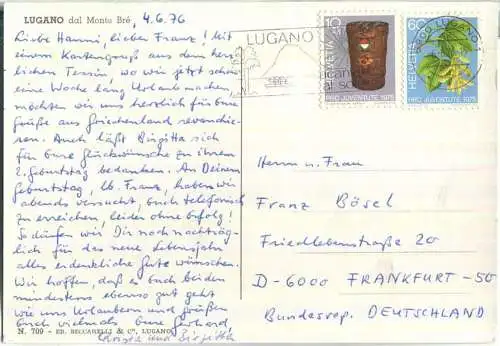 LUGANO dal Monte Brè, 4.6.76
Liebe Hanni, lieber Franz! Mit
einem Kartengruß aus dem herr-
lichen Tessin, wo wir jetzt schon
eine Woche lang Urlaub machen,
möchten wir uns herzlich für Eure
Grüße aus Griechenland revanchie-
ren. Auch läßt Birgitta sich
für Eure Glückwünsche zu ihrem
2. Geburtstag bedanken. An Deinem
Geburtstag, lb. Franz, haben wir
abends versucht, Euch telefonisch
zu erreichen, leider ohne Erfolg!
So dürfen wir Dir noch nachträg-
lich für das neue Lebensjahr
alles erdenkliche Gute wünschen.
Wir hoffen, daß es Euch beiden
mindestens ebenso gut geht
wie uns Urlaubern und grüßen
Euch vielmals Eure Gerhard,
Christa und Birgitta
N. 709 - ED. BECCARELLI & Co, LUGANO
LUGANO
HELVETIA
10
PRO JUVENTUTE 1975
HELVETIA
60
PRO JUVENTUTE 1975
LUGANO 1
Herrn u. Frau
Franz Bösel
Friedlebenstraße 20
D-6000 FRANKFURT-50
Bundesrep. DEUTSCHLAND